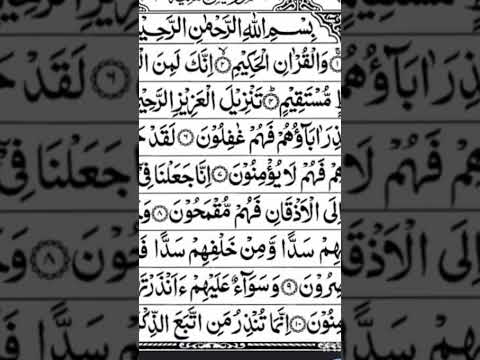 بِسْمِ اللهِ الرَّحْمٰنِ الرَّحِيْ
وَالْقُرْاٰنِ الْحَكِيْمِ ۝۲ اِنَّكَ لَمِنَ
مُّسْتَقِيْمٍ ۝۴ تَنْزِيْلَ الْعَزِيْزِ الرَّحِيْ
ذِرَ اٰبَآؤُهُمْ فَهُمْ غٰفِلُوْنَ ۝۶ لَقَدْ حَ
هِمْ فَهُمْ لَا يُؤْمِنُوْنَ ۝۷ اِنَّا جَعَلْنَا فِيْٓ
اِلَى الْاَذْقَانِ فَهُمْ مُّقْمَحُوْنَ ۝۸ وَجَ
هِمْ سَدًّا وَّمِنْ خَلْفِهِمْ سَدًّا فَ
صِرُوْنَ ۝۹ وَسَوَآءٌ عَلَيْهِمْ ءَاَنْذَرْتَ
مِنُوْنَ ۝۱۰ اِنَّمَا تُنْذِرُ مَنِ اتَّبَعَ الذِّكْ